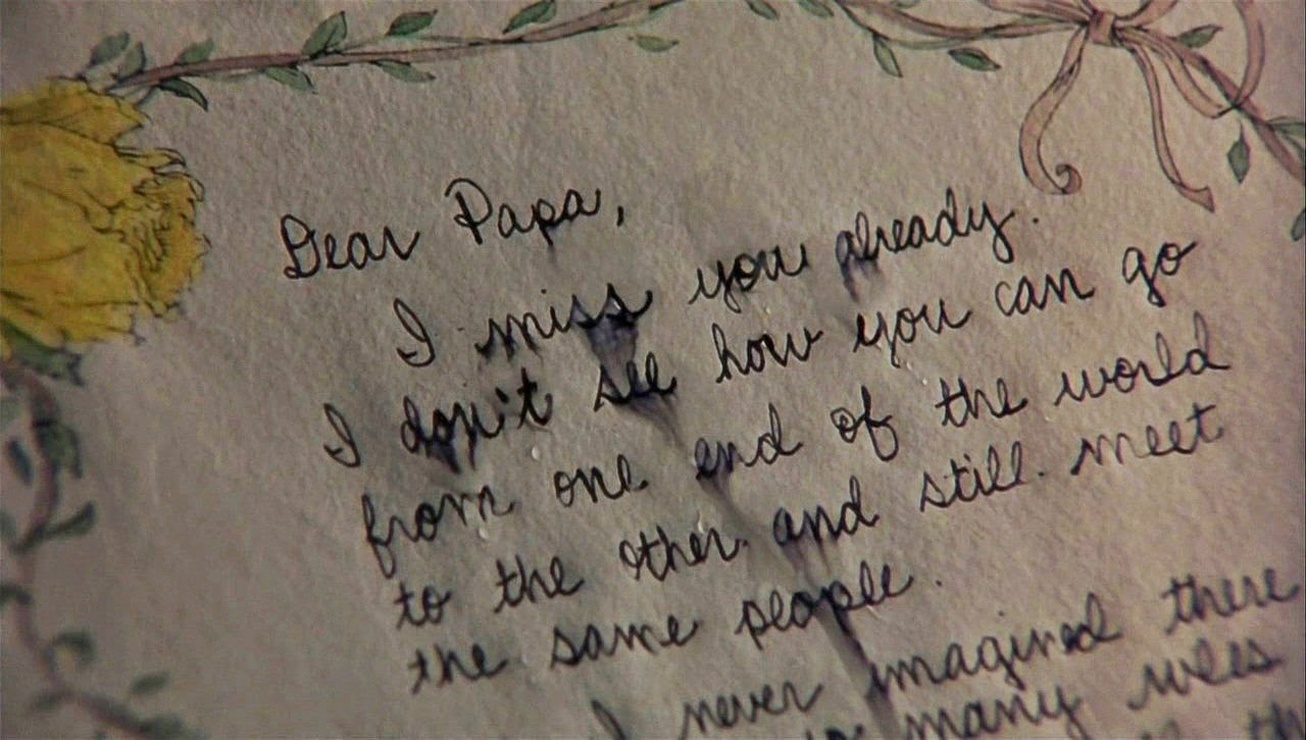 Dear Papa,
I miss you already.
I don't see how you can go
from one end of the world
to the other and still meet
the same people.
I never imagined there
many rules